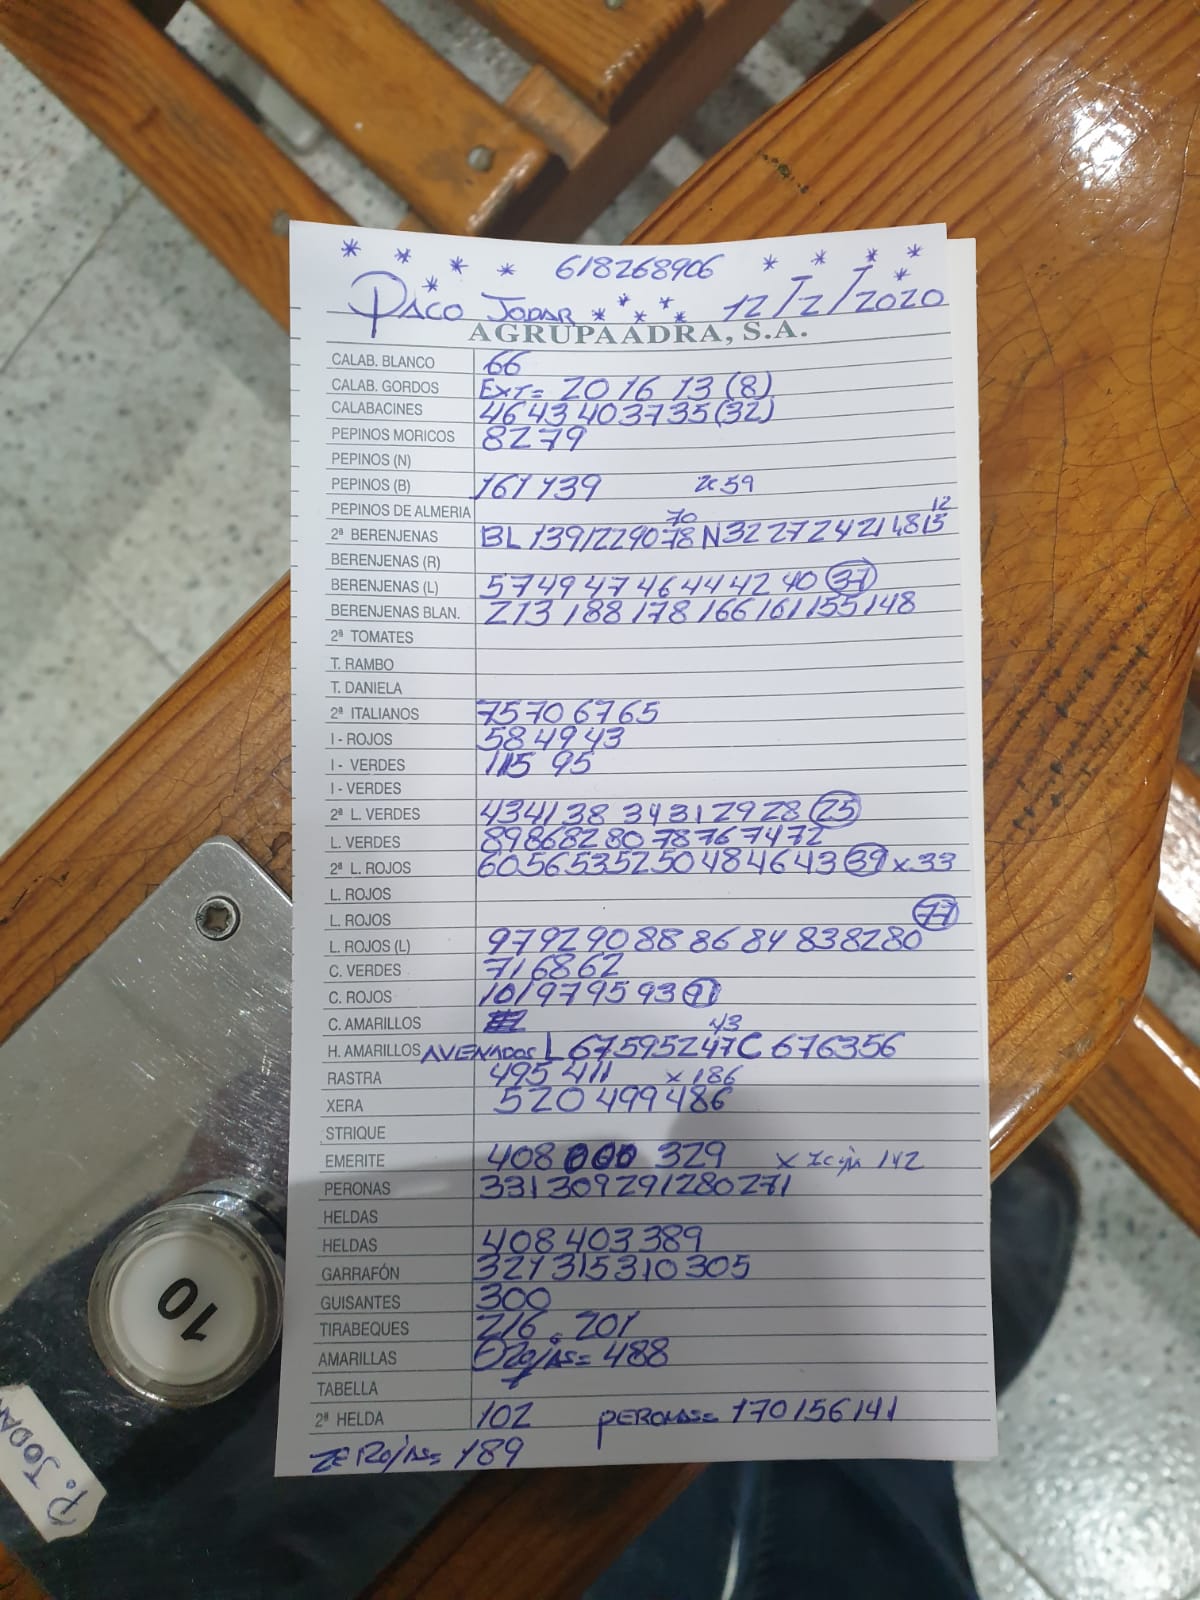 618268906
PACO JODAR 12/2/2020
AGRUPAADRA, S.A.
CALAB. BLANCO 66
CALAB. GORDOS EXT= 20 16 13 (8)
CALABACINES 46 43 40 37 35 (32)
PEPINOS MORICOS 82 79
PEPINOS (N)
PEPINOS (B) 161 139 2ª 59
PEPINOS DE ALMERIA
70 12
2ª BERENJENAS BL 139 122 90 78 N 32 27 24 21 18 15
BERENJENAS (R)
BERENJENAS (L) 57 49 47 46 44 42 40 (37)
BERENJENAS BLAN. 213 188 178 166 161 155 148
2ª TOMATES
T. RAMBO
T. DANIELA
2ª ITALIANOS 75 70 67 65
I - ROJOS 58 49 43
I - VERDES 115 95
I - VERDES
2ª L. VERDES 43 41 38 34 31 29 28 (25)
L. VERDES 89 86 82 80 78 76 74 72
2ª L. ROJOS 60 56 53 52 50 48 46 43 (39) x 33
L. ROJOS
L. ROJOS (77)
L. ROJOS (L) 97 92 90 88 86 84 83 82 80
C. VERDES 71 68 62
C. ROJOS 101 97 95 93 (91)
C. AMARILLOS
43
H. AMARILLOS AVENADOS L 67 59 52 47 C 67 63 56
RASTRA 495 411 x 186
XERA 520 499 486
STRIQUE
EMERITE 408 329 x 142
PERONAS 331 309 291 280 271
HELDAS
HELDAS 408 403 389
GARRAFÓN 321 315 310 305
GUISANTES 300
TIRABEQUES 216 . 201
AMARILLAS ROJAS= 488
TABELLA
2ª HELDA 102 PERONAS= 170 156 141
2ª ROJAS= 189
10
P. JODAR